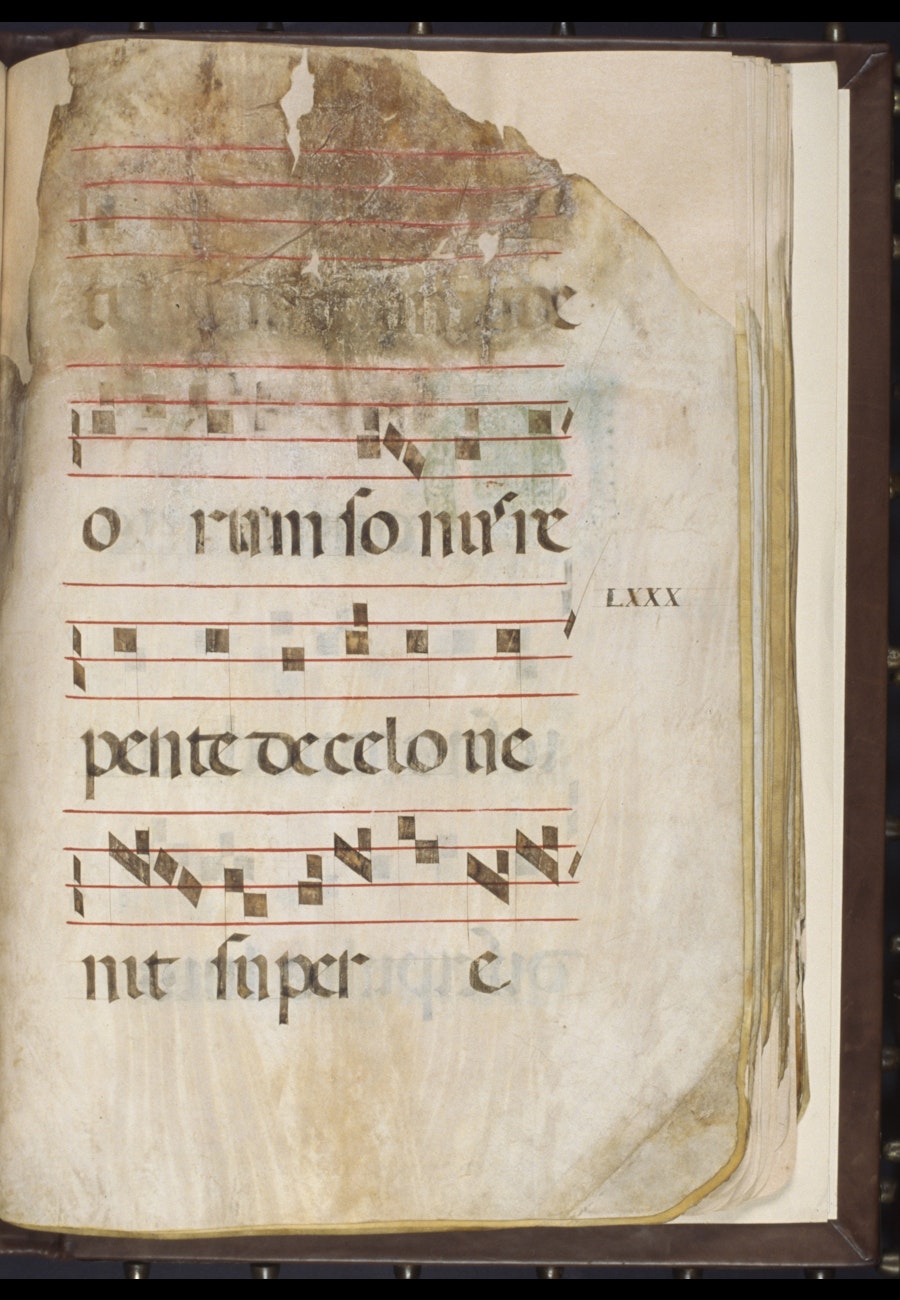 o rum so nus re
LXXX
pente de celo ue
nit super e